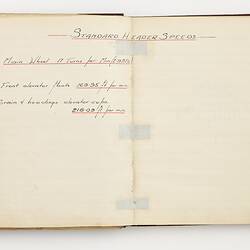 STANDARD HEADER SPEEDS
Main Wheel 17 Turns for Min
Front elevator floats 269·35 ft per min
Grain & headings elevator cups
216·09 ft per min